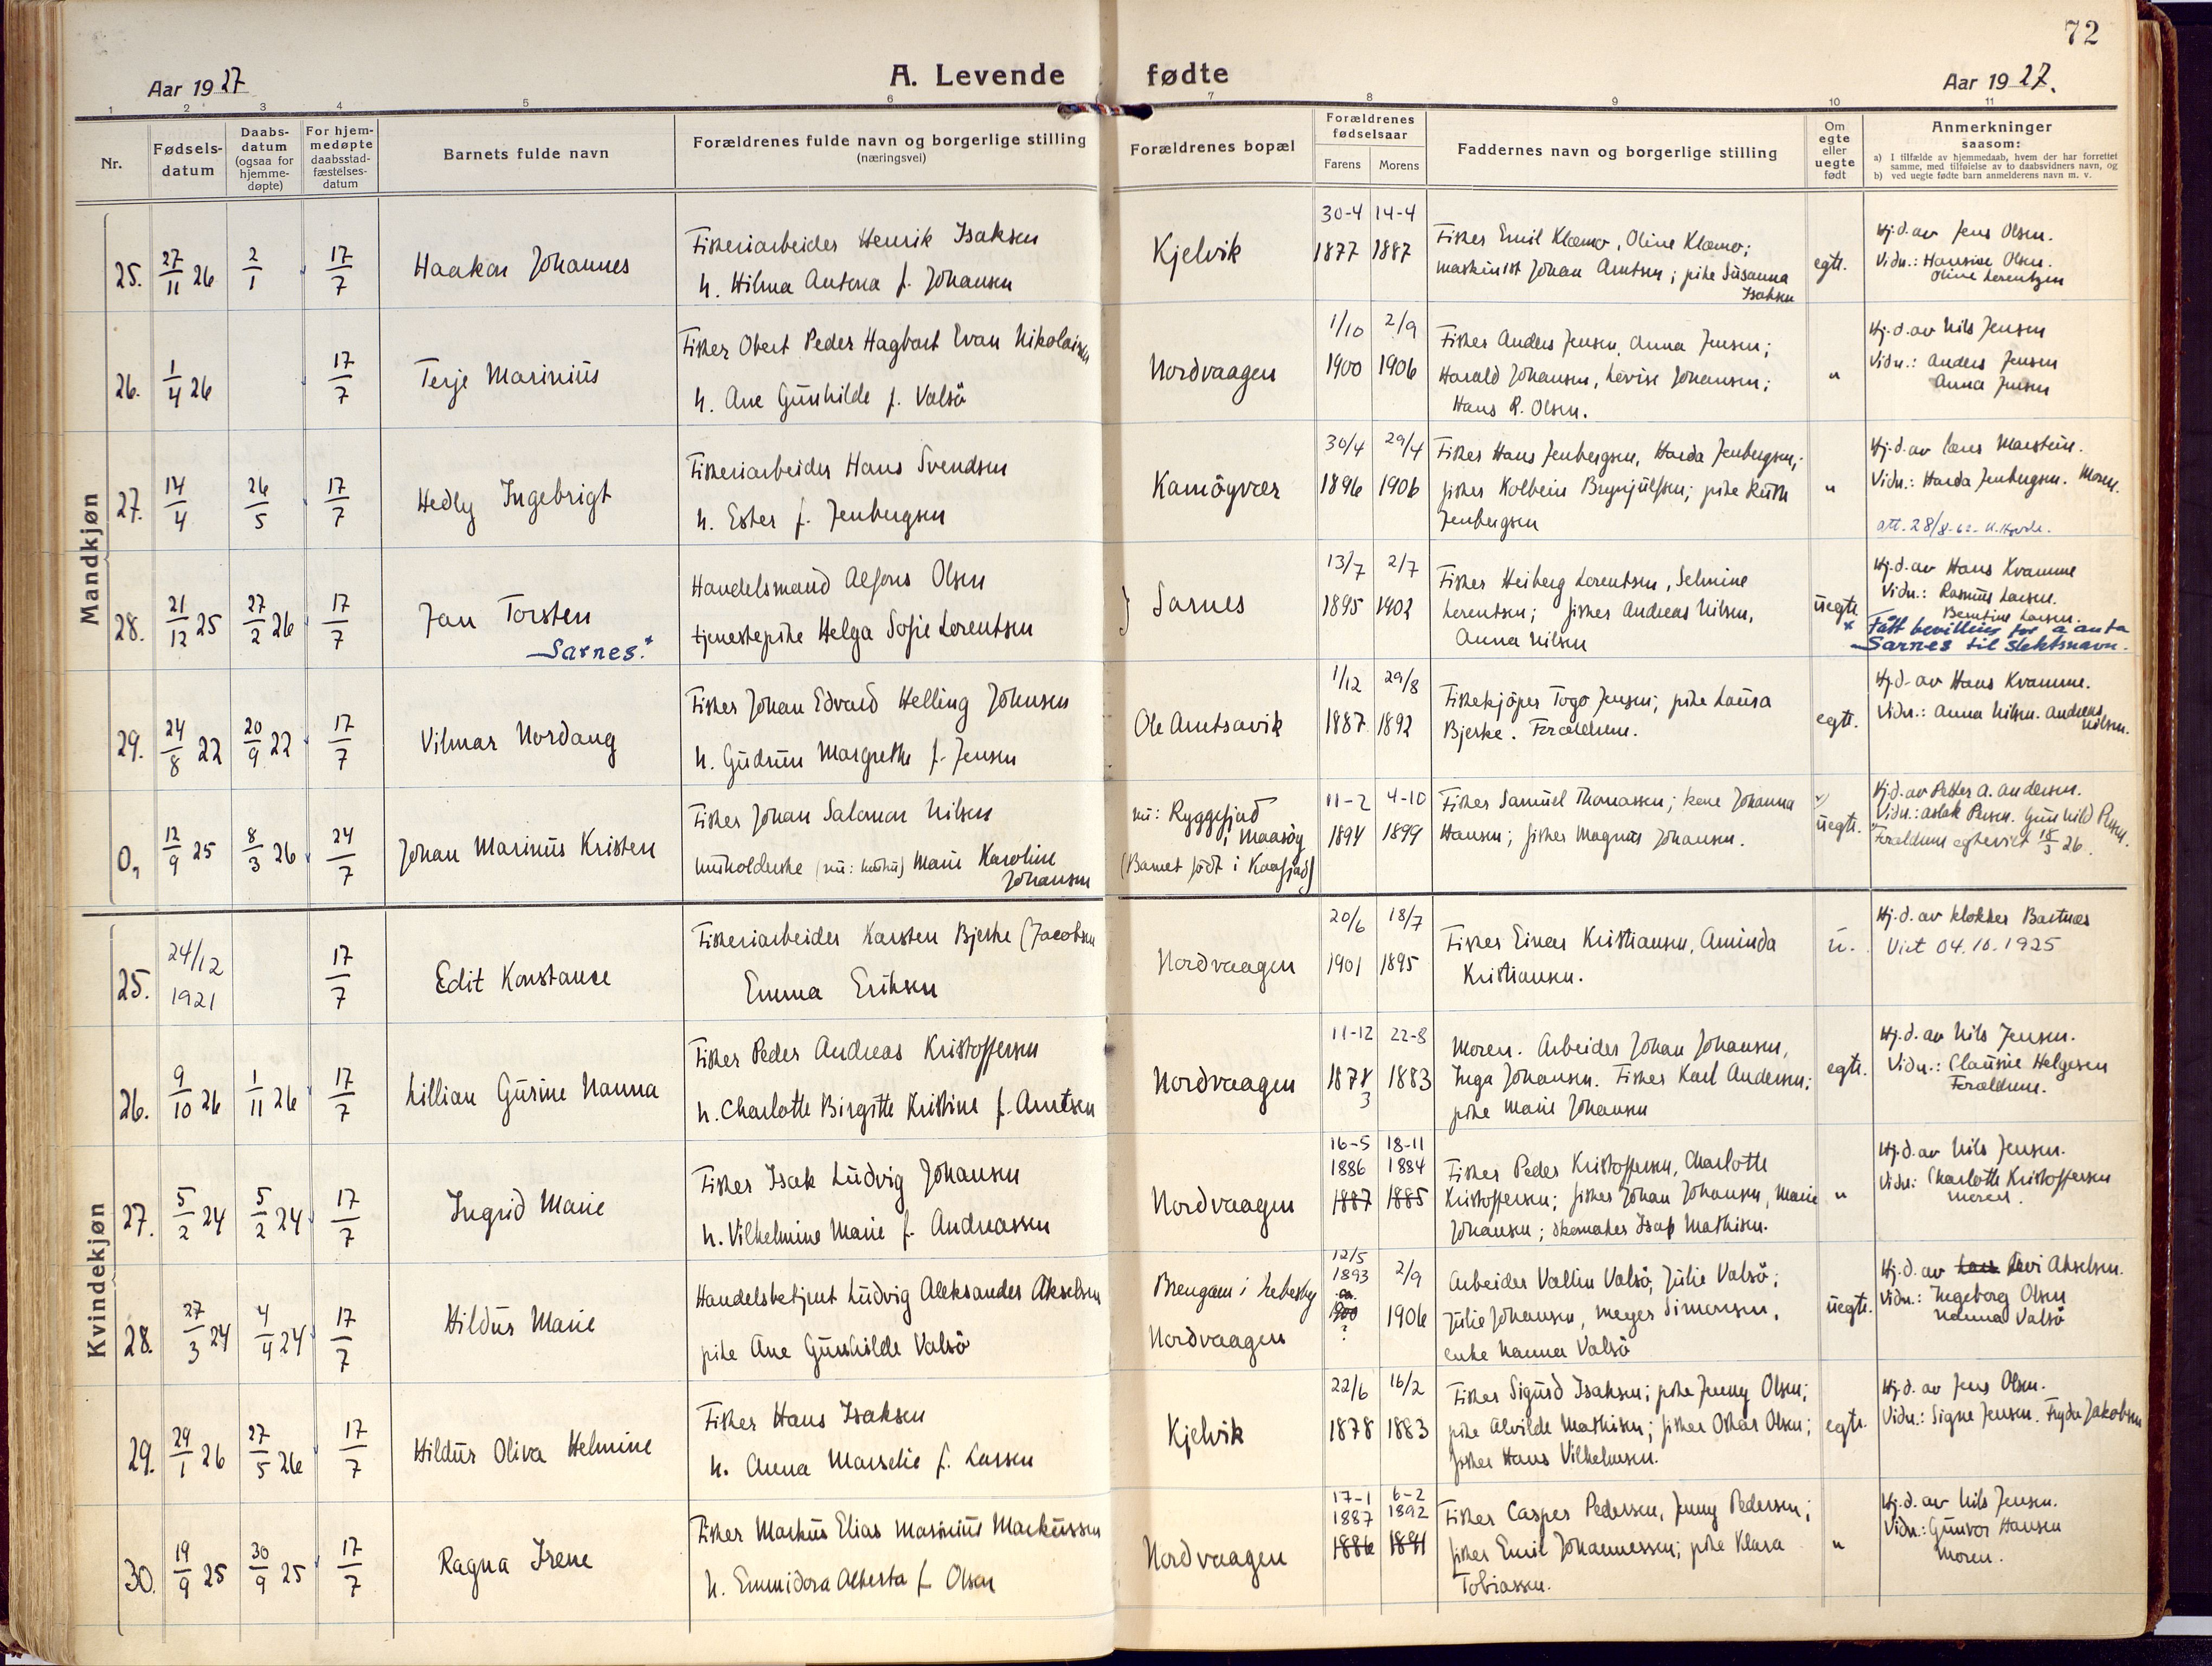 72
Aar 1927
A. Levende fødte
Aar 1927.
1 2 3 4 5 6 7 8 9 10 11
Nr.
Fødsels-
datum
Daabs-
datum
(ogsaa for
hjemme-
døpte)
For hjem-
medøpte
daabsstad-
fæstelses-
datum
Barnets fulde navn
Forældrenes fulde navn og borgerlige stilling
(næringsvei)
Forældrenes bopæl
Forældrenes
fødselsaar
Farens Morens
Faddernes navn og borgerlige stilling
Om
egte
eller
uegte
født
Anmerkninger
saasom:
a) I tilfælde av hjemmedaab, hvem der har forrettet
samme, med tilføielse av to daabsvidners navn, og
b) ved uegte fødte barn anmelderens navn m. v.
Mandkjøn
25. 27/11 26 2/1 17/7
Haakon Johannes
Fiskeriarbeider Henrik Isaksen
h. Hilma Antona f. Johansen
Kjelvik
30-4 14-4
1877 1887
Fisker Emil Klæmo, Oline Klæmo;
maskinist Johan Arntsen; pike Susanna
Isaksen
egte.
Hj.d. av Jens Olsen.
Vidn.: Hansine Olsen.
Oline Lorentzen
26. 1/4 26 17/7
Terje Marinius
Fisker Obert Peder Hagbart Evan Nikolaisen
h. Ane Gunhilde f. Valsö
Nordvaagen
1/10 2/9
1900 1906
Fisker Anders Jensen, Anna Jensen;
Harald Johansen, Lovise Johansen;
Hans R. Olsen.
"
Hj.d. av Nils Jensen
Vidn.: Anders Jensen
Anna Jensen
27. 14/4 26/5 17/7
Hedly Ingebrigt
Fiskeriarbeider Hans Svendsen
h. Ester f. Jenbergsen
Kamöyvær
30/4 29/4
1896 1906
Fisker Hans Jenbergsen, Harda Jenbergsen;
fisker Kolbein Brynjulfsen; pike Ruth
Jenbergsen
"
Hj.d. av Lars Marstein.
Vidn.: Harda Jenbergsen. Moren.
att. 28/8-62
28. 21/12 25 27/2 26 17/7
Jan Torsten
Sarnes.*
Handelsmand Alfons Olsen
tjenestepike Helga Sofie Lorentsen
Sarnes
13/7 2/7
1895 1902
Fisker Heiberg Lorentsen, Selmine
Lorentsen; fisker Andreas Nilsen,
Anna Nilsen
uegte
Hj.d. av Hans Kvamme
Vidn.: Rasmus Larsen.
Berntine Larsen.
* Fått bevilling for å anta
Sarnes til slektsnavn.
29. 24/8 22 20/9 22 17/7
Vilmar Nordang
Fisker Johan Edvard Helling Johnsen
h. Gudrun Margrethe f. Jensen
Ole Arntsavik
1/12 29/8
1887 1892
Fiskekjøper Togo Jensen; pike Laura
Bjerke. Forældrene.
egte.
Hj.d. av Hans Kvamme.
Vidn.: Anna Nilsen. Andreas
Nilsen.
0, 12/9 25 8/3 26 24/7
Johan Marinus Kristen
Fisker Johan Salamon Nilsen
husholderske (nu: hustru) Marie Karoline
Johansen
nu: Ryggefjord
i Maasöy
(Barnet födt i Kaafjord)
11-2 4-10
1894 1899
Fisker Samuel Thomassen; kone Johanna
Hansen; fisker Magnus Johansen.
uegte.
Hj.d. av Petter A. Andersen.
Vidn.: Aslak Persen. Gunhild Persen.
Forældrene egteviet 18/3 26.
Kvindekjøn
25. 24/12
1921 17/7
Edit Konstanse
Fiskeriarbeider Karsten Bjerke (Jacobsen
Emma Eriksen
Nordvaagen
20/6 18/7
1901 1895
Fisker Einar Kristiansen, Aminda
Kristiansen.
u.
Hj.d. av klokker Bartnæs
Viet 04.10.1925
26. 9/10 26 1/11 26 17/7
Lillian Gusine Nanna
Fisker Peder Andreas Kristoffersen
h. Charlotte Birgitte Kristine f. Arntsen
Nordvaagen
11-12 22-8
1878 1883
3
Moren. Arbeider Johan Johansen,
Inga Johansen. Fisker Karl Andersen;
pike Marie Johansen
egte.
Hj.d. av Nils Jensen.
Vidn.: Clausine Helgesen
Forældrene.
27. 5/2 24 5/2 24 17/7
Ingrid Marie
Fisker Isak Ludvig Johansen
h. Vilhelmine Marie f. Andreassen
Nordvaagen
16-5 18-11
1886 1884
1887 1885
Fisker Peder Kristoffersen, Charlotte
Kristoffersen; fisker Johan Johansen, Marie
Johansen; skomaker Isap Mathisen.
"
Hj.d. av Nils Jensen.
Vidn.: Charlotte Kristoffersen
moren.
28. 27/3 24 4/4 24 17/7
Hildur Marie
Handelsbetjent Ludvig Aleksander Akselsen
pike Ane Gunhilde Valsö
Brengam i Lebesby
Nordvaagen
12/5
1893 2/9
ca.
1900 1906
?
Arbeider Vallin Valsö, Julie Valsö;
Julie Johansen, Meyer Simonsen,
enke Nanna Valsö
uegte.
Hj.d. av Lars Levi Akselsen.
Vidn.: Ingeborg Olsen
Nanna Valsö
29. 29/1 26 27/5 26 17/7
Hildur Oliva Helmine
Fisker Hans Isaksen
h. Anna Marselie f. Larsen
Kjelvik
22/6 16/2
1878 1883
Fisker Sigurd Isaksen; pike Jenny Olsen;
pike Alvilde Mathisen; fisker Oskar Olsen;
fisker Hans Vilhelmsen.
egte.
Hj.d. av Jens Olsen.
Vidn.: Signe Jensen. Fryda Jakobsen
30. 19/9 25 30/9 25 17/7
Ragna Irene
Fisker Markus Elias Marinius Markussen
h. Emmidora Alberta f. Olsen
Nordvaagen
17-1 6-2
1887 1892
1886 1891
Fisker Casper Pedersen, Jenny Pedersen;
fisker Emil Johannessen; pike Klara
Tobiassen.
"
Hj.d. av Nils Jensen.
Vidn.: Gunvor Hansen
Moren.